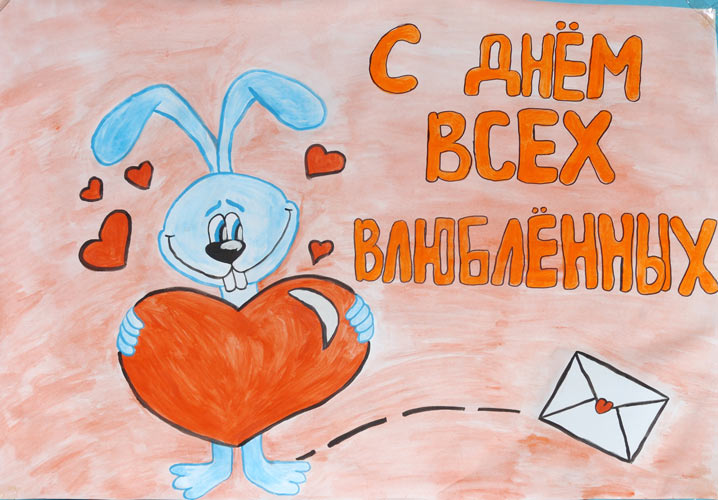 С ДНЁМ
ВСЕХ
ВЛЮБЛЁННЫХ